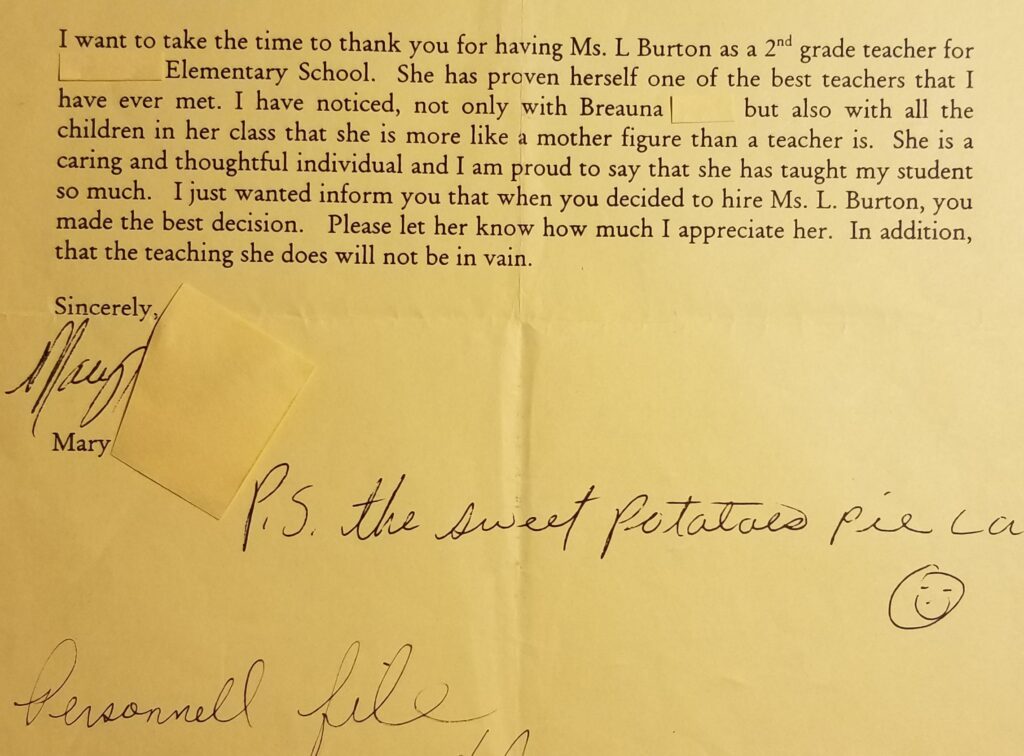 I want to take the time to thank you for having Ms. L Burton as a 2nd grade teacher for
Elementary School. She has proven herself one of the best teachers that I
have ever met. I have noticed, not only with Breauna but also with all the
children in her class that she is more like a mother figure than a teacher is. She is a
caring and thoughtful individual and I am proud to say that she has taught my student
so much. I just wanted inform you that when you decided to hire Ms. L. Burton, you
made the best decision. Please let her know how much I appreciate her. In addition,
that the teaching she does will not be in vain.
Sincerely,
Mary
Mary
P.S. the sweet potatoes pie La
Personnell file